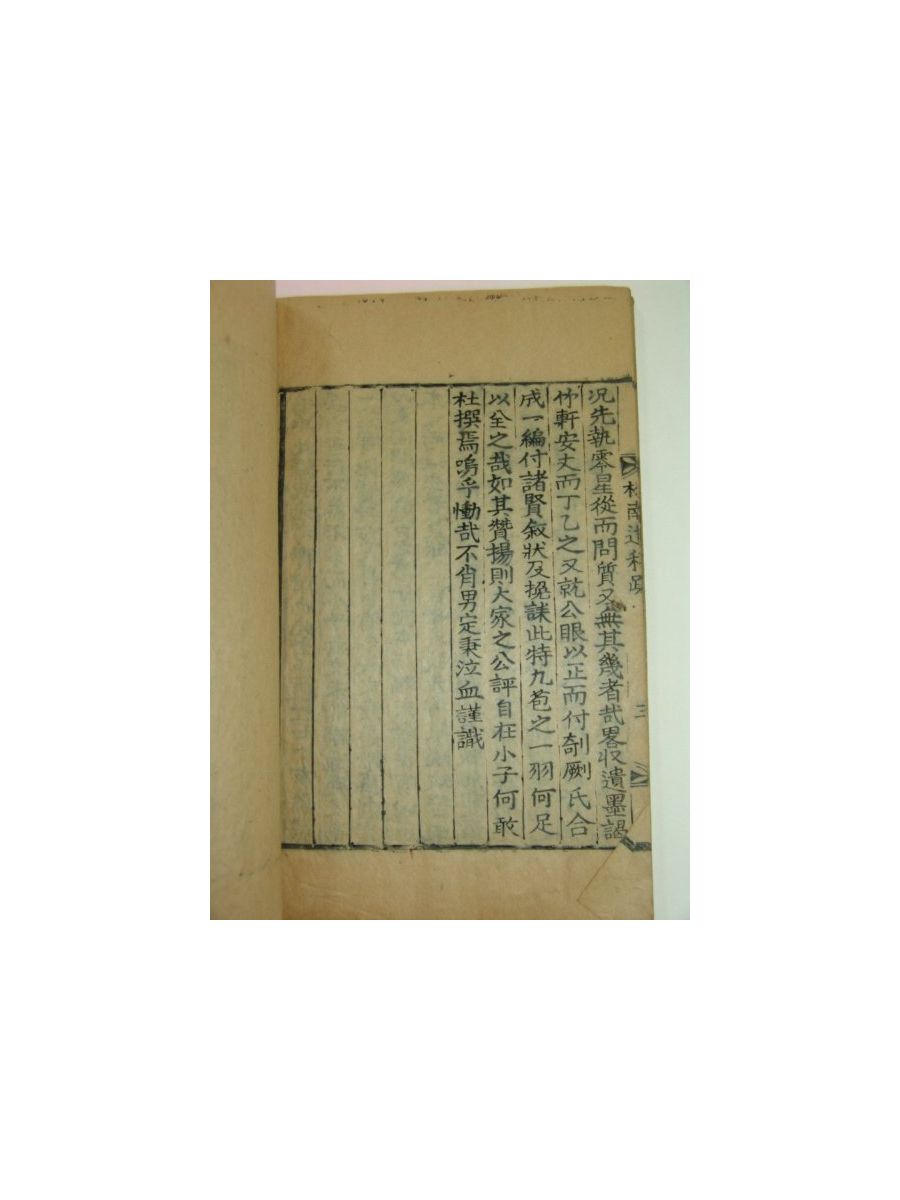 况先執零星從而問質又無其幾者哉畧收遺墨謁
竹軒安丈而丁乙之又就公眼以正而付剞劂氏合
成一編付諸賢敘狀及挽誄此特九苞之一羽何足
以全之哉如其贊揚則大家之公評自在小子何敢
杜撰焉嗚乎慟哉不肖男定秉泣血謹識
南
三